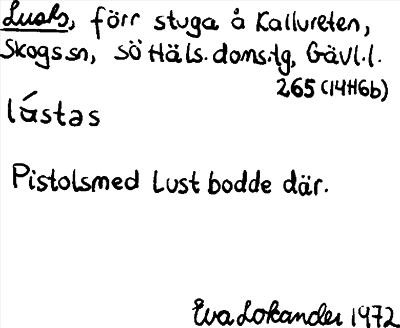 Lusks, förr stuga å Kallureten,
Skogs sn, SÖ Häls. doms.tg, Gävl.l.
265 (14H6b)
lústas
Pistolsmed Lust bodde där.
Eva Lokander 1972